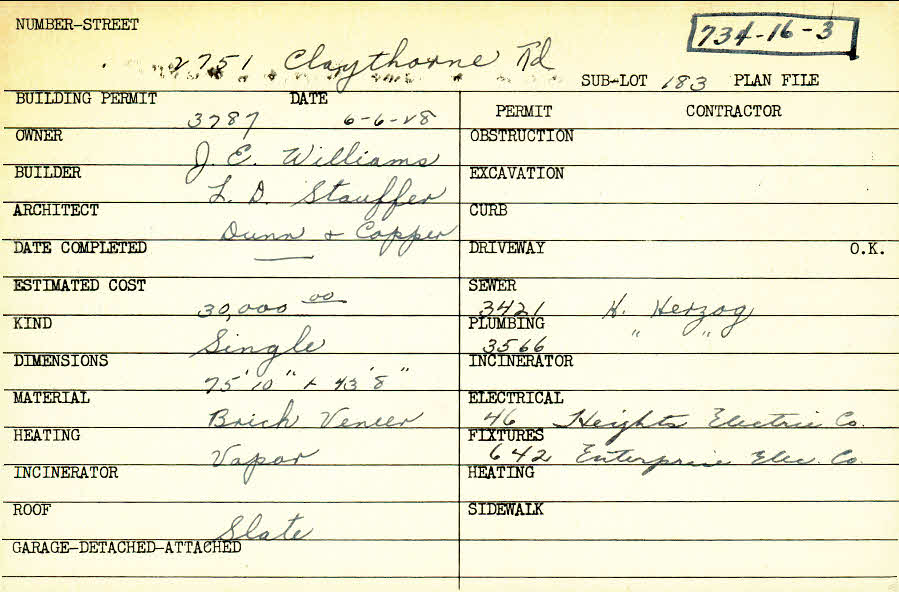 NUMBER-STREET
734-16-3
2751 Claythorne Rd
SUB-LOT 183 PLAN FILE
BUILDING PERMIT DATE
3787 6-6-28
PERMIT CONTRACTOR
OWNER
J. E. Williams
OBSTRUCTION
BUILDER
L. D. Stauffer
EXCAVATION
ARCHITECT
Dunn & Copper
CURB
DATE COMPLETED
—
DRIVEWAY O.K.
ESTIMATED COST
30,000 00
SEWER
3421 H. Herzog
KIND
Single
PLUMBING
3566 " "
DIMENSIONS
75'10" x 43'8"
INCINERATOR
MATERIAL
Brick Veneer
ELECTRICAL
46 Heights Electric Co.
HEATING
Vapor
FIXTURES
642 Enterprise Elec. Co.
INCINERATOR
HEATING
ROOF
Slate
SIDEWALK
GARAGE-DETACHED-ATTACHED